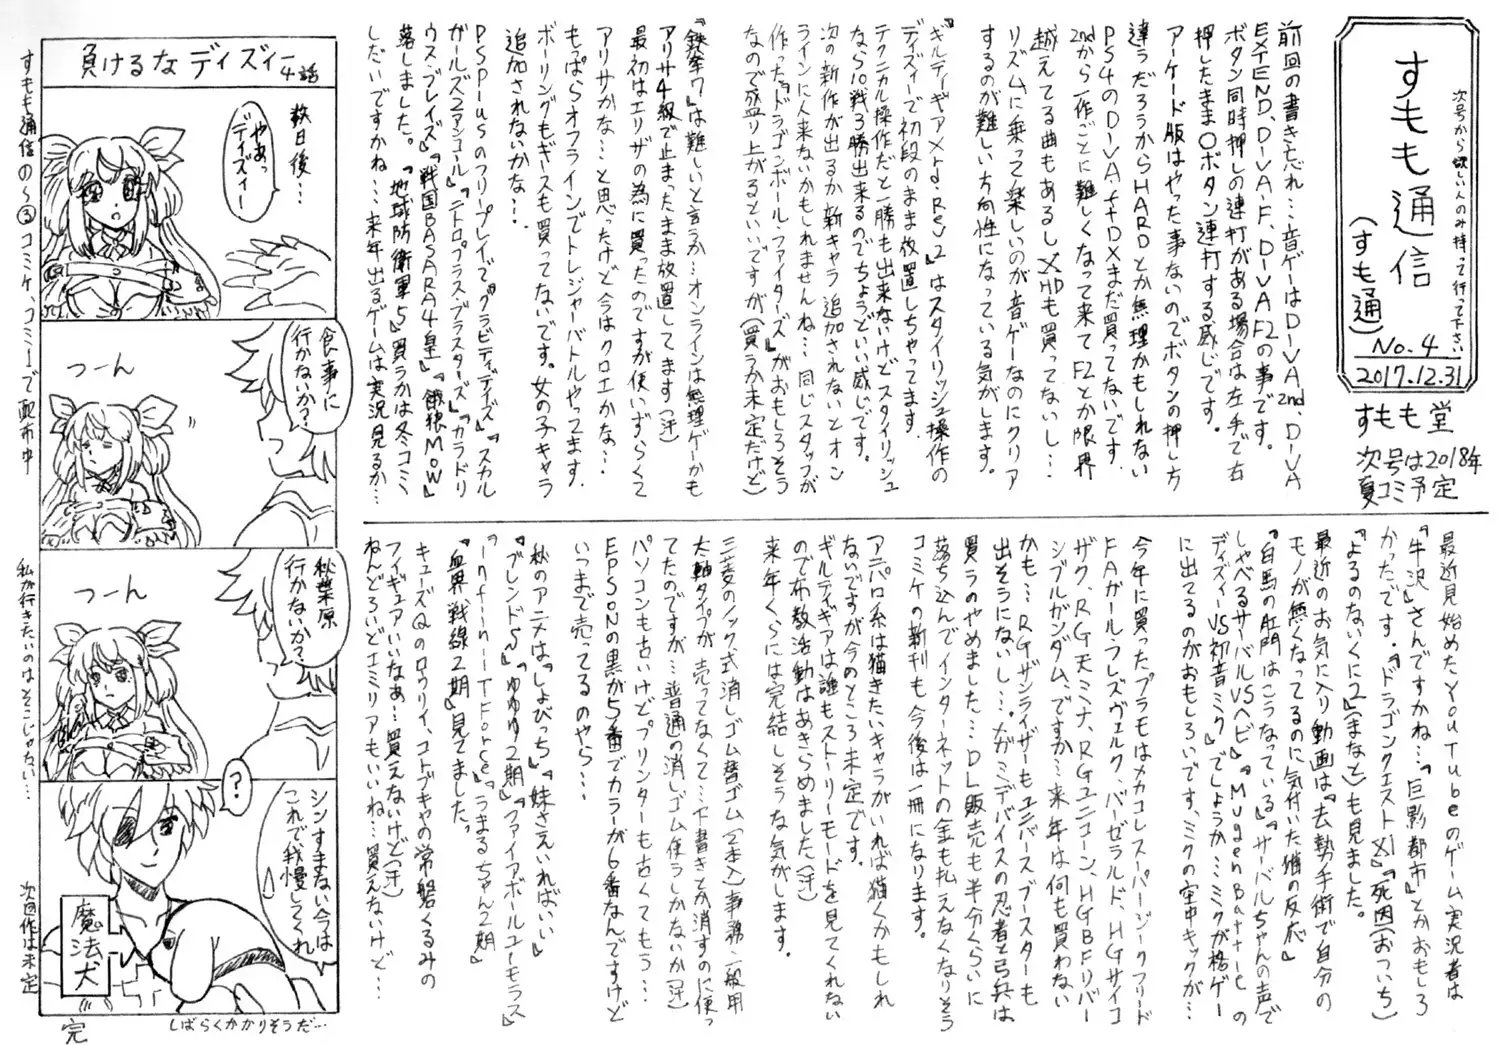 次号から欲しい人のみ持って行って下さい
すもも通信
(すも通)
No.4
2017.12.31
すもも堂
次号は2018年
夏コミ予定
前回の書き忘れ…音ゲーはD-IVA2nd、D-IVA
EXTEND、D-IVA-F、D-IVAF2の事です。
ボタン同時押しの連打がある場合は左手で右
押したまま○ボタン連打する感じです。
アーケード版はやった事ないのでボタンの押し方
違うだろうからHARDとか無理かもしれない
PS4のD-IVAf+DXまだ買ってないです。
2ndから一作ごとに難しくなって来てF2とか限界
越えてる曲もあるしXHDも買ってないし…
リズムに乗って楽しいのが音ゲーなのにクリア
するのが難しい方向性になっている気がします。
『ギルティギアXrd-Rev2』はスタイリッシュ操作の
ディズィーで初段のまま放置しちゃってます。
テクニカル操作だと一勝も出来ないけどスタイリッシュ
なら10戦3勝出来るのでちょうどいい感じです。
次の新作が出るか新キャラ追加されないとオン
ラインに人来ないかもしれませんね…同じスタッフが
作った『ドラゴンボール・ファイターズ』がおもしろそう
なので盛り上がるといいですが(買うか未定だけど)
『鉄拳7』は難しいと言うか…オンラインは無理ゲーかも
アリサ4級で止まったまま放置してます(汗)
最初はエリザの為に買ったのですが使いずらくて
アリサかな…と思ったけど今はクロエかな…
もっぱらオフラインでトレジャーバトルやってます。
ボーリングもギースも買ってないです。女の子キャラ
追加されないかな…
PSPlusのフリープレイで『グラビティデイズ』『スカル
ガールズ2アンコール』『ニトロプラス・ブラスターズ』『カラドリ
ウス・ブレイズ』『戦国BASARA4皇』『餓狼MOW』
落しました。『地球防衛軍5』買うかは冬コミ
しだいですかね…来年出るゲームは実況見るか…
最近見始めたYouTubeのゲーム実況者は
『牛沢』さんですかね…『巨影都市』とかおもしろ
かったです。『ドラゴンクエストXI』『死因(おついち)
『よるのないくに2』(まなと)も見ました。
最近のお気に入り動画は『去勢手術で自分の
モノが無くなってるのに気付いた猫の反応』
『白馬の肛門はこうなっている』『サーバルちゃんの声で
しゃべるサーバルVSヘビ』『MugenBattleの
ディズィーVS初音ミク』でしょうか…ミクが格ゲー
に出てるのがおもしろいです、ミクの空中キックが…
今年に買ったプラモはメカコレスーパージークフリード
FAガールフレズヴェルク、バーゼラルド、HGサイコ
ザク、RG天ミナ、RGユニコーン、HGBFリバー
シブルガンダム、ですか…来年は何も買わない
かも…RGザンライザーもユニバースブースターも
出そうにないし…だがミデバイスの忍者と弓兵は
買うのやめました…DL販売も半分くらいに
落ち込んでインターネットの金も払えなくなりそう
コミケの新刊も今後は一冊になります。
アニパロ系は描きたいキャラがいれば描くかもしれ
ないですが今のところ未定です。
ギルティギアは誰もストーリーモードを見てくれない
ので布教活動はあきらめました(汗)
来年くらには完結しそうな気がします。
三菱のノック式消しゴム替ゴム(2本入)事務一般用
太軸タイプが売ってなくて…下書きとか消すのに使っ
てたのですが…普通の消しゴム使うしかないか(汗)
パソコンも古いけどプリンターも古くてもう…
EPSONの黒が5番でカラーが6番なんですけど
いつまで売ってるのやら…
秋のアニメは『しょびっち』『妹さえいればいい』
『ブレンドS』『ゆゆゆ2期』『ファイアボールユーモラス』
『infini-TForce』『うまるちゃん2期』
『血界戦線2期』見てました。
キューズQのロウリィ、コトブキヤの常磐くるみの
フィギュアいいなぁ…買えないけど(汗)
ねんどろいどエミリアもいいね…買えないけど…
負けるなディズィー4話
数日後…
やぁっ
ディズィー
食事に
行かないか?
つーん
秋葉原
行かないか?
つーん
?
シンすまない今は
これで我慢してくれ
魔法犬
しばらくかかりそうだ…
完
すもも通信の1~3コミケ、コミ1で配布中
私が行きたいのはそこじゃない…
次回作は未定